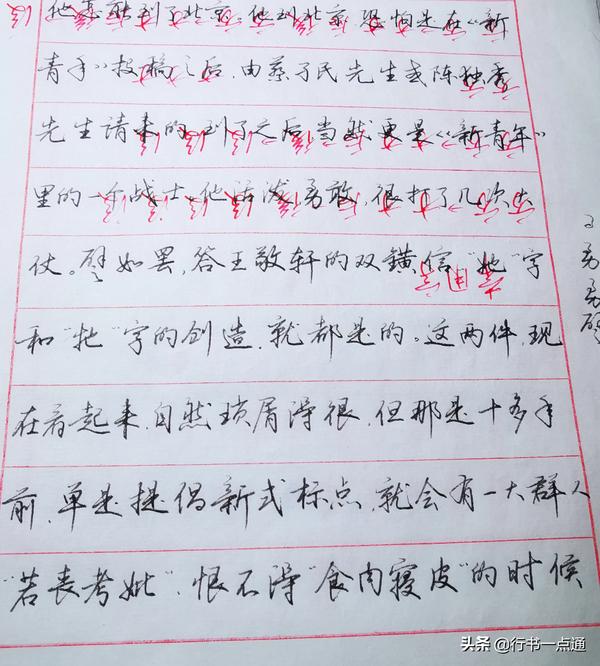 到了北京。他到北京,恐怕是在《新
青年》投稿之后,由蔡孑民先生或陈独秀
先生请来的,到了之后,当然更是《新青年》
里的一个战士。他活泼,勇敢,很打了几次大
仗。譬如罢,答王敬轩的双鐄信,"她"字
和"牠"字的创造,就都是的。这两件,现
在看起来,自然琐屑得很,但那是十多年
前,单是提倡新式标点,就会有一大群人
"若丧考妣",恨不得"食肉寝皮"的时候
勇勇譬
头条 @行书一点通